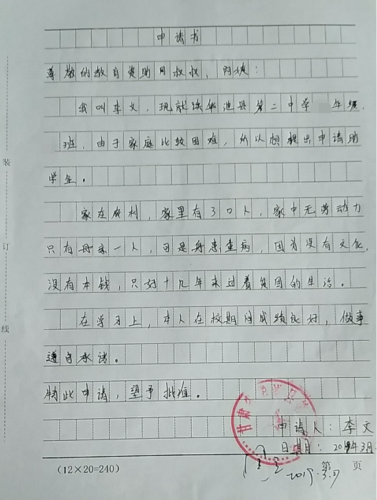 申请书
尊敬的教育资助日叔叔,阿姨:
我叫李文,现就读 池县第二中学 年级,
班,由于家庭比较困难,所以想提出申请助
学生。
家在农村,家里有3口人,家中无劳动力
只有母亲一人,可是母患重病,因为没有文化,
没有本钱,只好十几年来过着贫困的生活。
在学习上,本人在校期间成绩良好,做事
遵守承诺。
特此申请,望予批准。
申请人:李文
日期: 年3月
2019.3.
装
订
线
(12×20=240)
第 页